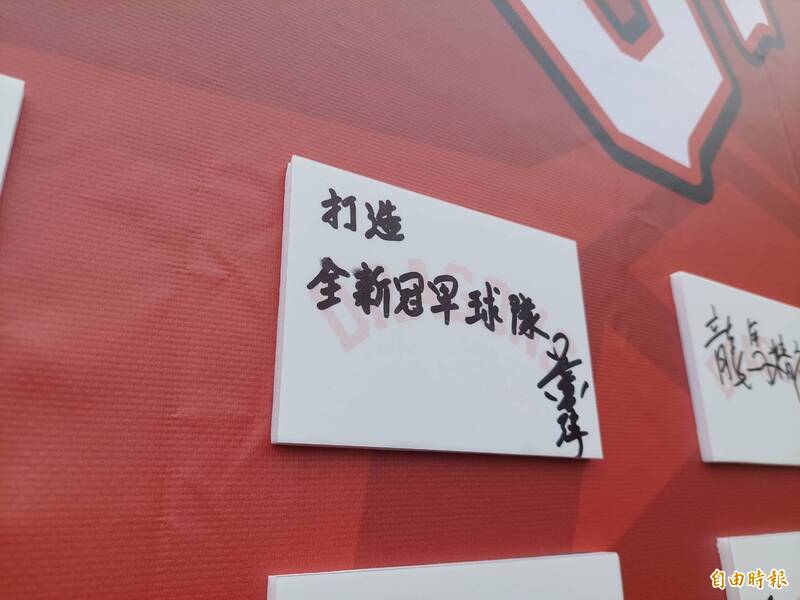 打造
全新冠軍球隊
DRAGONS
龍馬精
自由時報